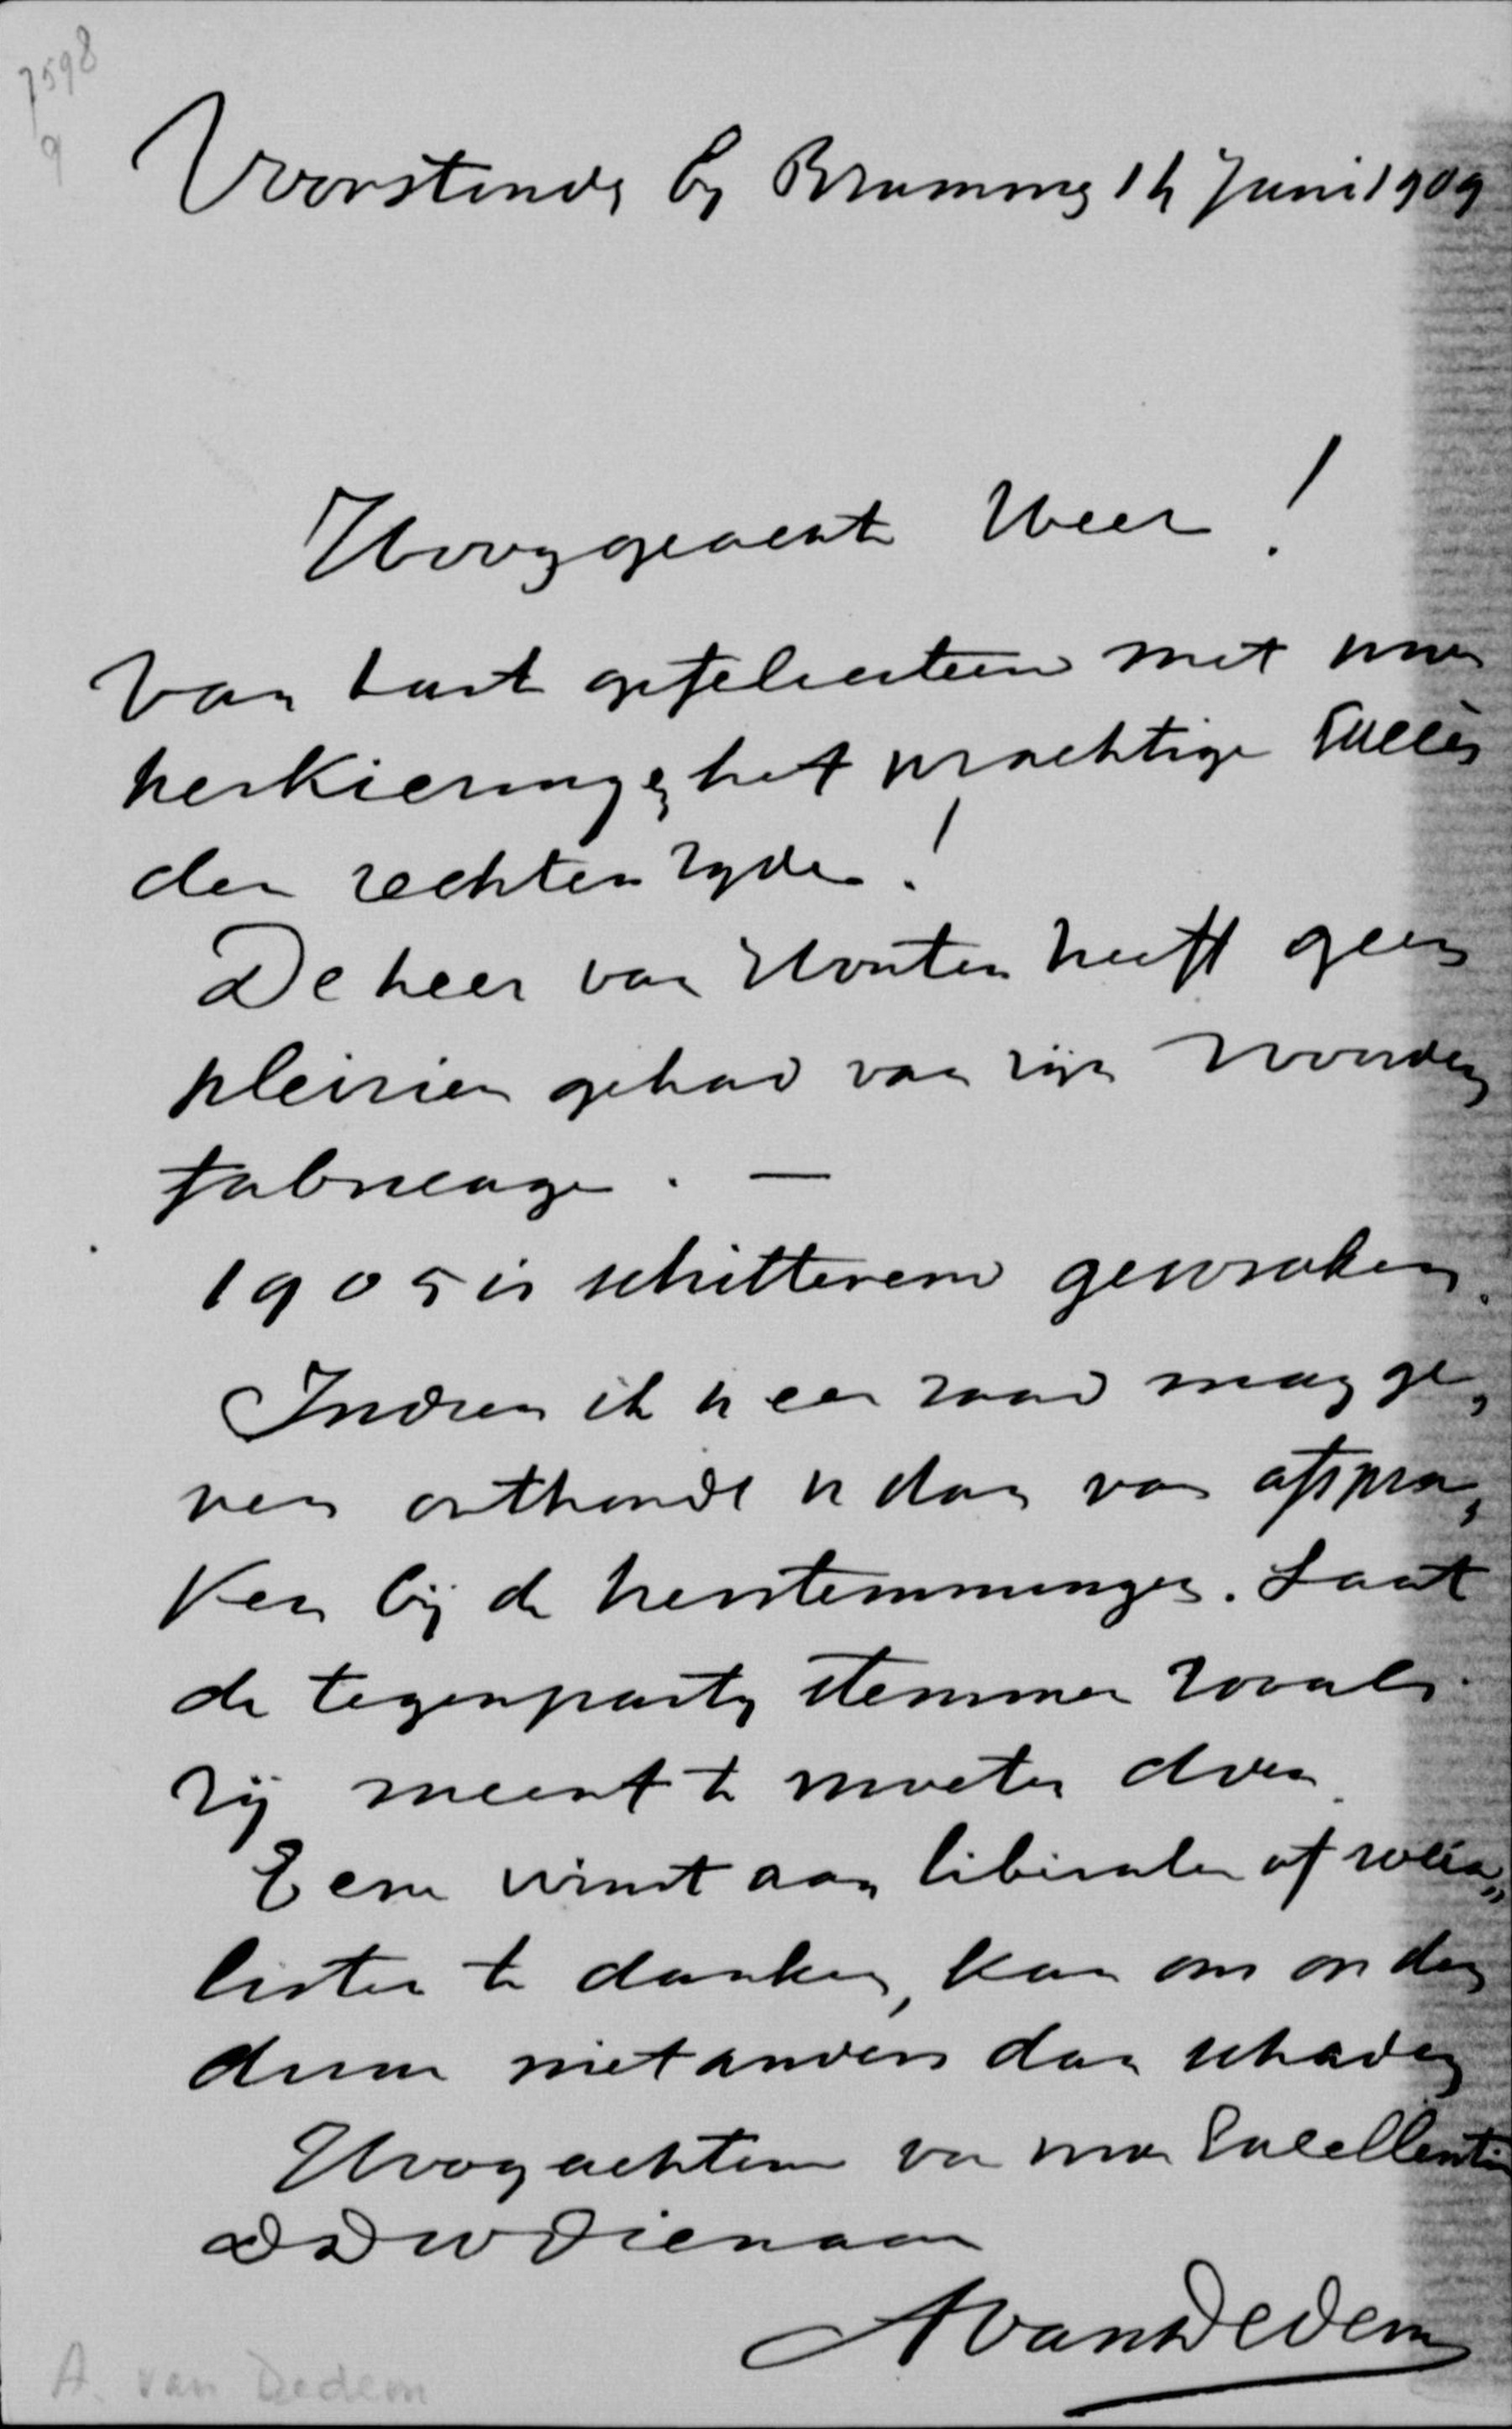 7598
9
Voorstonden by Brummen 14 Juni 1909
Hooggeachte Heer!
Van harte gefeliciteerd met uwe
herkiezing & het prachtige succès
der rechterzyde!
De heer van Houten heeft geen
pleizier gehad van zijn woorden
fabricage. —
1905 is schitterend gewroken.
Indien ik u een raad mag ge,
ven onthoudt u dan van afspra,
ken bij de herstemmingen. Laat
de tegenparty stemmen zooals
zij meent te moeten doen.
Eene winst aan liberalen of socia,,
listen te danken, kan ons on den
duur niet anders dan schaden
Hoogachtend van uwe Excellentie
DDw Dienaar
AvanDedem
A. van Dedem